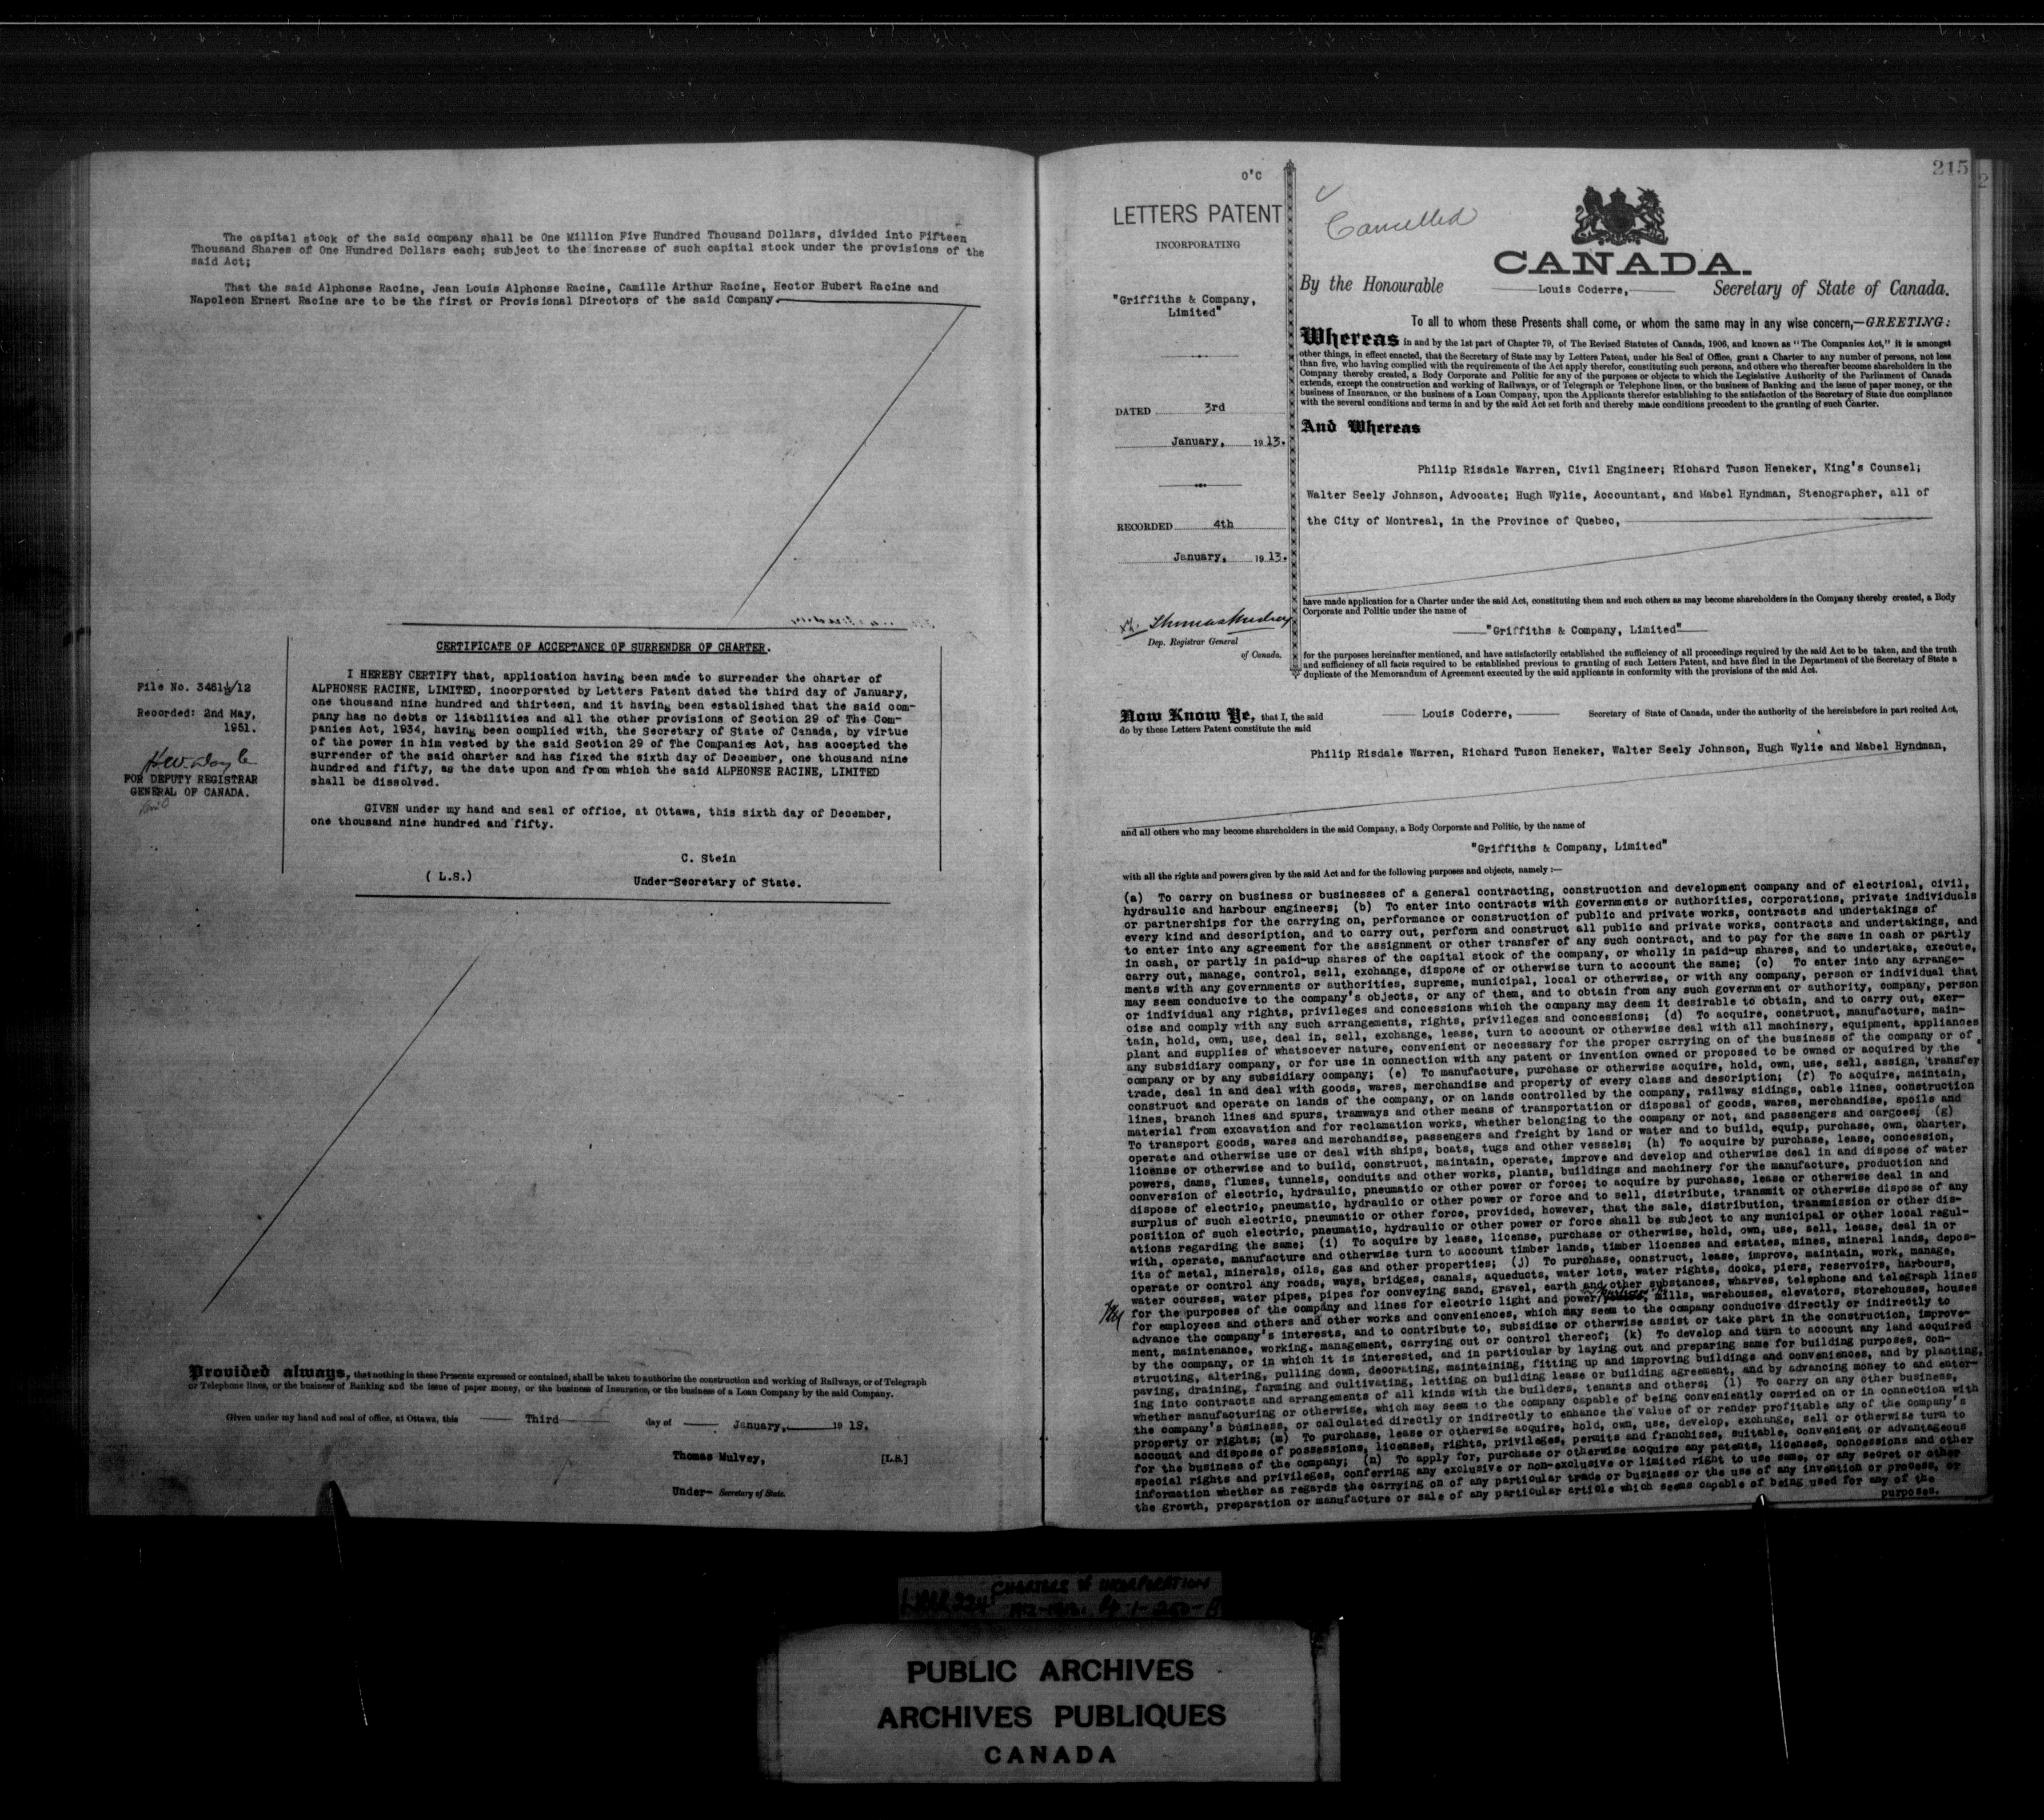 The capital stock of the said company shall be One Million Five Hundred Thousand Dollars, divided into Fifteen
Thousand Shares of One Hundred Dollars each; subject to the increase of such capital stock under the provisions of the
said Act;
That the said Alphonse Racine, Jean Louis Alphonse Racine, Camille Arthur Racine, Hector Hubert Racine and
Napoleon Ernest Racine are to be the first or Provisional Directors of the said Company.
CERTIFICATE OF ACCEPTANCE OF SURRENDER OF CHARTER.
File No. 3461½/12
Recorded: 2nd May,
1951.
FOR DEPUTY REGISTRAR
GENERAL OF CANADA.
I HEREBY CERTIFY that, application having been made to surrender the charter of
ALPHONSE RACINE, LIMITED, incorporated by Letters Patent dated the third day of January,
one thousand nine hundred and thirteen, and it having been established that the said com-
pany has no debts or liabilities and all the other provisions of Section 29 of The Com-
panies Act, 1934, having been complied with, the Secretary of State of Canada, by virtue
of the power in him vested by the said Section 29 of The Companies Act, has accepted the
surrender of the said charter and has fixed the sixth day of December, one thousand nine
hundred and fifty, as the date upon and from which the said ALPHONSE RACINE, LIMITED
shall be dissolved.
GIVEN under my hand and seal of office, at Ottawa, this sixth day of December,
one thousand nine hundred and fifty.
C. Stein
(L.S.) Under-Secretary of State.
Provided always, that nothing in these Presents expressed or contained, shall be taken to authorise the construction and working of Railways, or of Telegraph
or Telephone lines, or the business of Banking and the issue of paper money, or the business of Insurance, or the business of a Loan Company by the said Company.
Given under my hand and seal of office, at Ottawa, this Third day of January, 19 13.
Thomas Mulvey, [L.S.]
Under- Secretary of State.
215
2
O'C
LETTERS PATENT
INCORPORATING
"Griffiths & Company,
Limited"
DATED 3rd
January, 1913.
RECORDED 4th
January, 1913.
Thomas Mulvey
Dep. Registrar General
of Canada.
Cancelled
CANADA.
By the Honourable Louis Coderre, Secretary of State of Canada.
To all to whom these Presents shall come, or whom the same may in any wise concern,—GREETING:
Whereas in and by the 1st part of Chapter 79, of The Revised Statutes of Canada, 1906, and known as "The Companies Act," it is amongst
other things, in effect enacted, that the Secretary of State may by Letters Patent, under his Seal of Office, grant a Charter to any number of persons, not less
than five, who having complied with the requirements of the Act apply therefor, constituting such persons, and others who thereafter become shareholders in the
Company thereby created, a Body Corporate and Politic for any of the purposes or objects to which the Legislative Authority of the Parliament of Canada
extends, except the construction and working of Railways, or of Telegraph or Telephone lines, or the business of Banking and the issue of paper money, or the
business of Insurance, or the business of a Loan Company, upon the Applicants therefor establishing to the satisfaction of the Secretary of State due compliance
with the several conditions and terms in and by the said Act set forth and thereby made conditions precedent to the granting of such Charter.
And Whereas
Philip Risdale Warren, Civil Engineer; Richard Tuson Heneker, King's Counsel;
Walter Seely Johnson, Advocate; Hugh Wylie, Accountant, and Mabel Hyndman, Stenographer, all of
the City of Montreal, in the Province of Quebec,
have made application for a Charter under the said Act, constituting them and such others as may become shareholders in the Company thereby created, a Body
Corporate and Politic under the name of
"Griffiths & Company, Limited"
for the purposes hereinafter mentioned, and have satisfactorily established the sufficiency of all proceedings required by the said Act to be taken, and the truth
and sufficiency of all facts required to be established previous to granting of such Letters Patent, and have filed in the Department of the Secretary of State a
duplicate of the Memorandum of Agreement executed by the said applicants in conformity with the provisions of the said Act.
Now Know Ye, that I, the said Louis Coderre, Secretary of State of Canada, under the authority of the hereinbefore in part recited Act,
do by these Letters Patent constitute the said
Philip Risdale Warren, Richard Tuson Heneker, Walter Seely Johnson, Hugh Wylie and Mabel Hyndman,
and all others who may become shareholders in the said Company, a Body Corporate and Politic, by the name of
"Griffiths & Company, Limited"
with all the rights and powers given by the said Act and for the following purposes and objects, namely :—
(a) To carry on business or businesses of a general contracting, construction and development company and of electrical, civil,
hydraulic and harbour engineers; (b) To enter into contracts with governments or authorities, corporations, private individuals
or partnerships for the carrying on, performance or construction of public and private works, contracts and undertakings of
every kind and description, and to carry out, perform and construct all public and private works, contracts and undertakings, and
to enter into any agreement for the assignment or other transfer of any such contract, and to pay for the same in cash or partly
in cash, or partly in paid-up shares of the capital stock of the company, or wholly in paid-up shares, and to undertake, execute,
carry out, manage, control, sell, exchange, dispose of or otherwise turn to account the same; (c) To enter into any arrange-
ments with any governments or authorities, supreme, municipal, local or otherwise, or with any company, person or individual that
may seem conducive to the company's objects, or any of them, and to obtain from any such government or authority, company, person
or individual any rights, privileges and concessions which the company may deem it desirable to obtain, and to carry out, exer-
cise and comply with any such arrangements, rights, privileges and concessions; (d) To acquire, construct, manufacture, main-
tain, hold, own, use, deal in, sell, exchange, lease, turn to account or otherwise deal with all machinery, equipment, appliances
plant and supplies of whatsoever nature, convenient or necessary for the proper carrying on of the business of the company or of
any subsidiary company, or for use in connection with any patent or invention owned or proposed to be owned or acquired by the
company or by any subsidiary company; (e) To manufacture, purchase or otherwise acquire, hold, own, use, sell, assign, transfer
trade, deal in and deal with goods, wares, merchandise and property of every class and description; (f) To acquire, maintain,
construct and operate on lands of the company, or on lands controlled by the company, railway sidings, cable lines, construction
lines, branch lines and spurs, tramways and other means of transportation or disposal of goods, wares, merchandise, spoils and
material from excavation and for reclamation works, whether belonging to the company or not, and passengers and cargoes; (g)
To transport goods, wares and merchandise, passengers and freight by land or water and to build, equip, purchase, own, charter,
operate and otherwise use or deal with ships, boats, tugs and other vessels; (h) To acquire by purchase, lease, concession,
license or otherwise and to build, construct, maintain, operate, improve and develop and otherwise deal in and dispose of water
powers, dams, flumes, tunnels, conduits and other works, plants, buildings and machinery for the manufacture, production and
conversion of electric, hydraulic, pneumatic or other power or force; to acquire by purchase, lease or otherwise deal in and
dispose of electric, pneumatic, hydraulic or other power or force and to sell, distribute, transmit or otherwise dispose of any
surplus of such electric, pneumatic or other force, provided, however, that the sale, distribution, transmission or other dis-
position of such electric, pneumatic, hydraulic or other power or force shall be subject to any municipal or other local regul-
ations regarding the same; (i) To acquire by lease, license, purchase or otherwise, hold, own, use, sell, lease, deal in or
with, operate, manufacture and otherwise turn to account timber lands, timber licenses and estates, mines, mineral lands, depos-
its of metal, minerals, oils, gas and other properties; (j) To purchase, construct, lease, improve, maintain, work, manage,
operate or control any roads, ways, bridges, canals, aqueducts, water lots, water rights, docks, piers, reservoirs, harbours,
water courses, water pipes, pipes for conveying sand, gravel, earth and other substances, wharves, telephone and telegraph lines
for the purposes of the company and lines for electric light and power, mills, warehouses, elevators, storehouses, houses
for employees and others and other works and conveniences, which may seem to the company conducive directly or indirectly to
advance the company's interests, and to contribute to, subsidize or otherwise assist or take part in the construction, improve-
ment, maintenance, working, management, carrying out or control thereof; (k) To develop and turn to account any land acquired
by the company, or in which it is interested, and in particular by laying out and preparing same for building purposes, con-
structing, altering, pulling down, decorating, maintaining, fitting up and improving buildings and conveniences, and by planting,
paving, draining, farming and cultivating, letting on building lease or building agreement, and by advancing money to and enter-
ing into contracts and arrangements of all kinds with the builders, tenants and others; (l) To carry on any other business,
whether manufacturing or otherwise, which may seem to the company capable of being conveniently carried on or in connection with
the company's business, or calculated directly or indirectly to enhance the value of or render profitable any of the company's
property or rights; (m) To purchase, lease or otherwise acquire, hold, own, use, develop, exchange, sell or otherwise turn to
account and dispose of possessions, licenses, rights, privileges, permits and franchises, suitable, convenient or advantageous
for the business of the company; (n) To apply for, purchase or otherwise acquire any patents, licenses, concessions and other
special rights and privileges, conferring any exclusive or non-exclusive or limited right to use same, or any secret or other
information whether as regards the carrying on of any particular trade or business or the use of any invention or process, or
the growth, preparation or manufacture or sale of any particular article which seems capable of being used for any of the
purposes.
CHARTERS OF INCORPORATION
LIBER 224 1912-1913.
PUBLIC ARCHIVES
ARCHIVES PUBLIQUES
CANADA